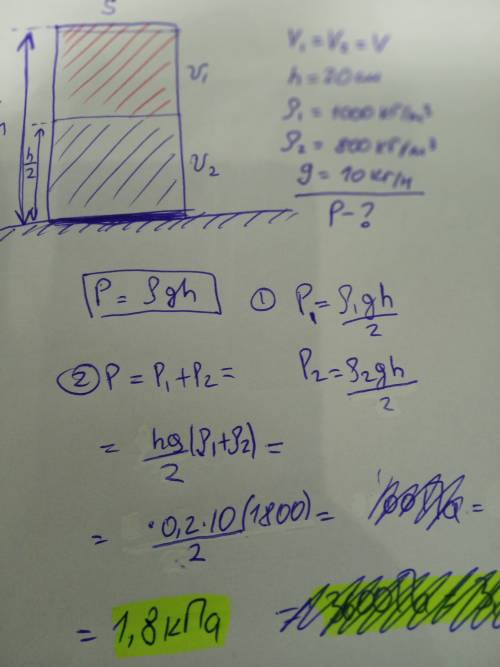 S
V₁ = V₂ = V
h = 20 см
ρ₁ = 1000 кг/м³
ρ₂ = 800 кг/м³
g = 10 кг/н
P - ?
h
h/2
υ₁
υ₂
P = ρgh
① P₁ = ρ₁gh/2
② P = P₁ + P₂ =
P₂ = ρ₂gh/2
= hg/2 (ρ₁ + ρ₂) =
= ·0,2·10(1800)/2 =
=
= 1,8 кПа